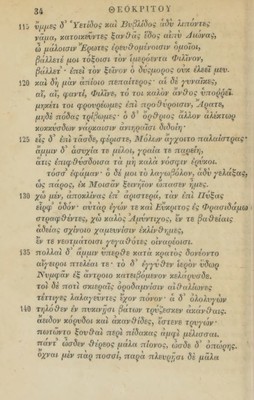 34 ΘΕΟΚΡΙΤΟΥ
115 ὔμμες δ' Ὑετίδος καὶ Βυβλίδος ἁδὺ λιπόντες
νᾶμα, κατοικεῦντες ξανθᾶς ἕδος αἰπὺ Διώνας,
ὦ μάλοισιν Ἔρωτες ἐρευθομένοισιν ὅμοιοι,
βάλλετέ μοι τόξοισι τὸν ἱμερόεντα Φιλῖνον,
βάλλετ', ἐπεὶ τὸν ξεῖνον ὁ δύσμορος οὐκ ἐλεεῖ μευ.
120 καὶ δὴ μὰν ἀπίοιο πεπαίτερος· αἱ δὲ γυναῖκες,
αἶ, αἶ, φαντί, Φιλῖνε, τό τοι καλὸν ἄνθος ἀπορρεῖ.
μηκέτι τοι φρουρέωμες ἐπὶ προθύροισιν, Ἄρατε,
μηδὲ πόδας τρίβωμες· ὁ δ' ὄρθριος ἄλλον ἀλέκτωρ
κοκκύσδων νάρκαισιν ἀνιηραῖσι διδοίη·
125 εἷς δ' ἐπὶ τᾶσδε, φέριστε, Μόλων ἄγχοιτο παλαίστρας·
ἄμμιν δ' ἁσυχία τε μέλοι, γραία τε παρείη,
ἅτις ἐπιφθύσδοισα τὰ μὴ καλὰ νόσφιν ἐρύκοι.
τόσσ' ἐφάμαν· ὁ δέ μοι τὸ λαγωβόλον, ἁδὺ γελάξας,
ὡς πάρος, ἐκ Μοισᾶν ξεινήϊον ὤπασεν ἦμες.
130 χὠ μέν, ἀποκλίνας ἐπ' ἀριστερά, τὰν ἐπὶ Πύξας
εἷρφ' ὁδόν· αὐτὰρ ἐγών τε καὶ Εὔκριτος ἐς Φρασιδάμω
στραφθέντες, χὠ καλὸς Ἀμύντιχος, ἔν τε βαθείαις
ἁδείας σχίνοιο χαμευνίσιν ἐκλίνθημες,
ἔν τε νεοτμάτοισι γεγαθότες οἰναρέοισι.
135 πολλαὶ δ' ἄμμιν ὕπερθε κατὰ κρατὸς δονέοντο
αἴγειροι πτελέαι τε· τὸ δ' ἐγγύθεν ἱερὸν ὕδωρ
Νυμφᾶν ἐξ ἄντροιο κατειβόμενον κελάρυσδε.
τοὶ δὲ ποτὶ σκιεραῖς ὀροδαμνίσιν αἰθαλίωνες
τέττιγες λαλαγεῦντες ἔχον πόνον· ἁ δ' ὀλολυγὼν
140 τηλόθεν ἐν πυκινῇσι βάτων τρύζεσκεν ἀκάνθαις.
ἄειδον κόρυδοι καὶ ἀκανθίδες, ἔστενε τρυγών·
πωτῶντο ξουθαὶ περὶ πίδακας ἀμφὶ μέλισσαι.
πάντ' ὦσδεν θέρεος μάλα πίονος, ὦσδε δ' ὀπώρης.
ὄχναι μὲν πὰρ ποσσί, παρὰ πλευρῇσι δὲ μᾶλα